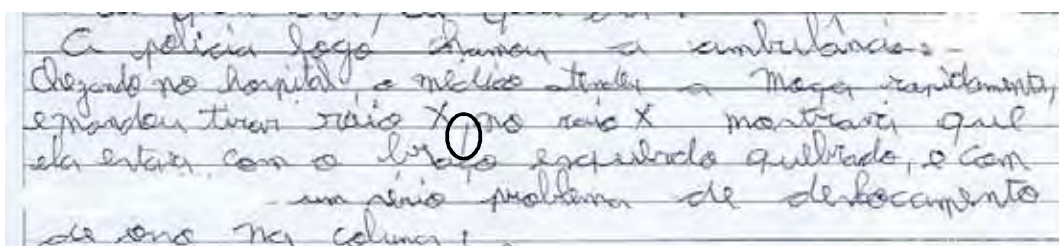 A polícia logo chamou a ambulância.
Chegando no hospital o médico atendeu a moça rapidamente,
e mandou tirar ráio X, no raio X mostrava que
ela estava com o braço esquerdo quebrado, e com
um sério problema de deslocamento
de osso na coluna!